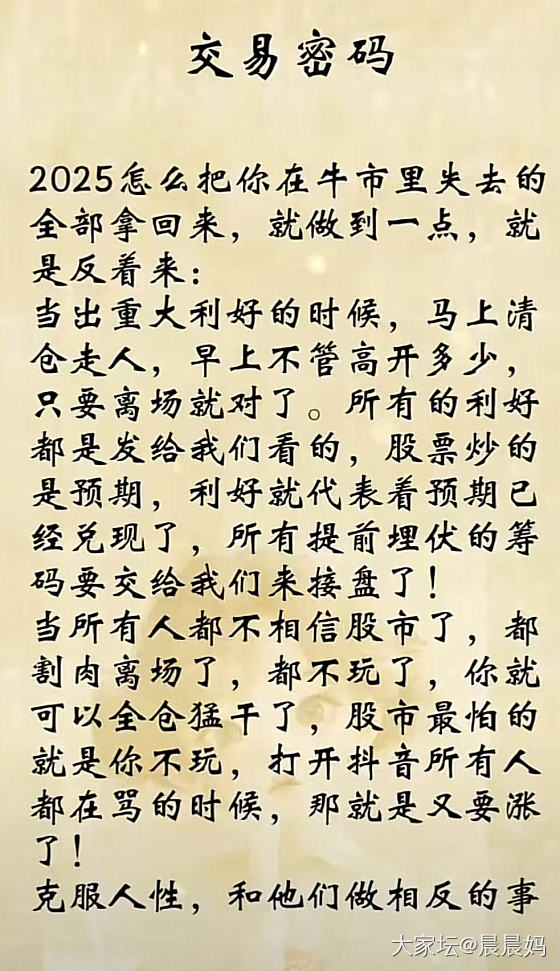 交易密码
2025怎么把你在牛市里失去的
全部拿回来，就做到一点，就
是反着来：
当出重大利好的时候，马上清
仓走人，早上不管高开多少，
只要离场就对了。所有的利好
都是发给我们看的，股票炒的
是预期，利好就代表着预期已
经兑现了，所有提前埋伏的筹
码要交给我们来接盘了！
当所有人都不相信股市了，都
割肉离场了，都不玩了，你就
可以全仓猛干了，股市最怕的
就是你不玩，打开抖音所有人
都在骂的时候，那就是又要涨
了！
克服人性，和他们做相反的事
大家坛@晨晨妈